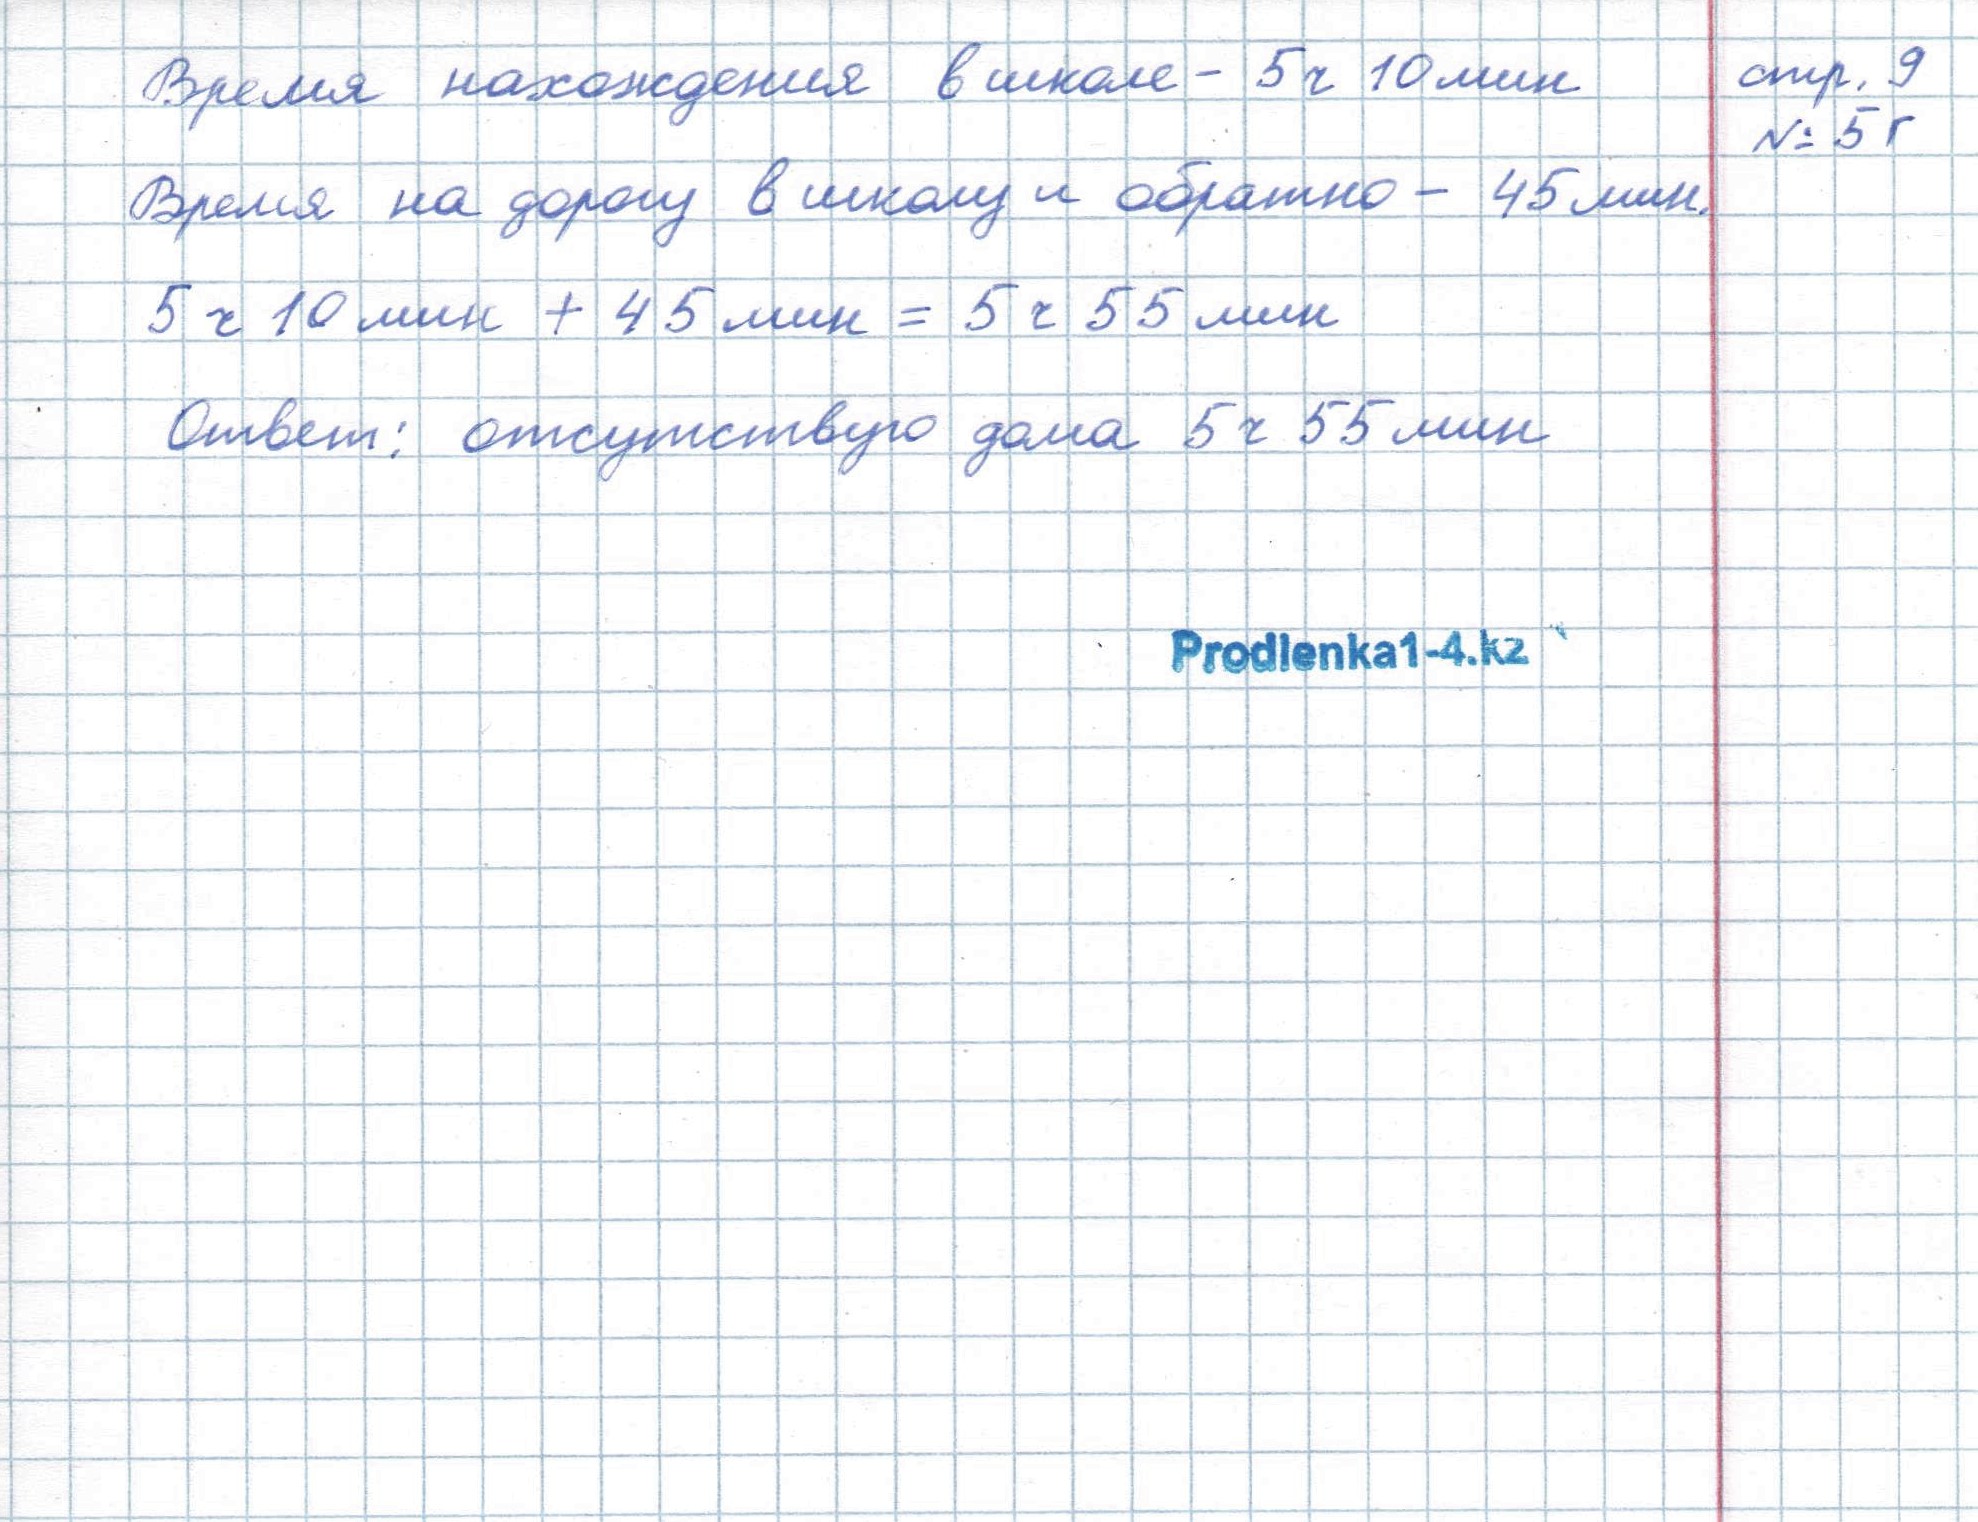 Время нахождения в школе - 5ч 10 мин
стр. 9
№ 5 г
Время на дорогу в школу и обратно - 45 мин.
5 ч 10 мин + 45 мин = 5 ч 55 мин
Ответ: отсутствую дома 5ч 55 мин
Prodlenka1-4.kz